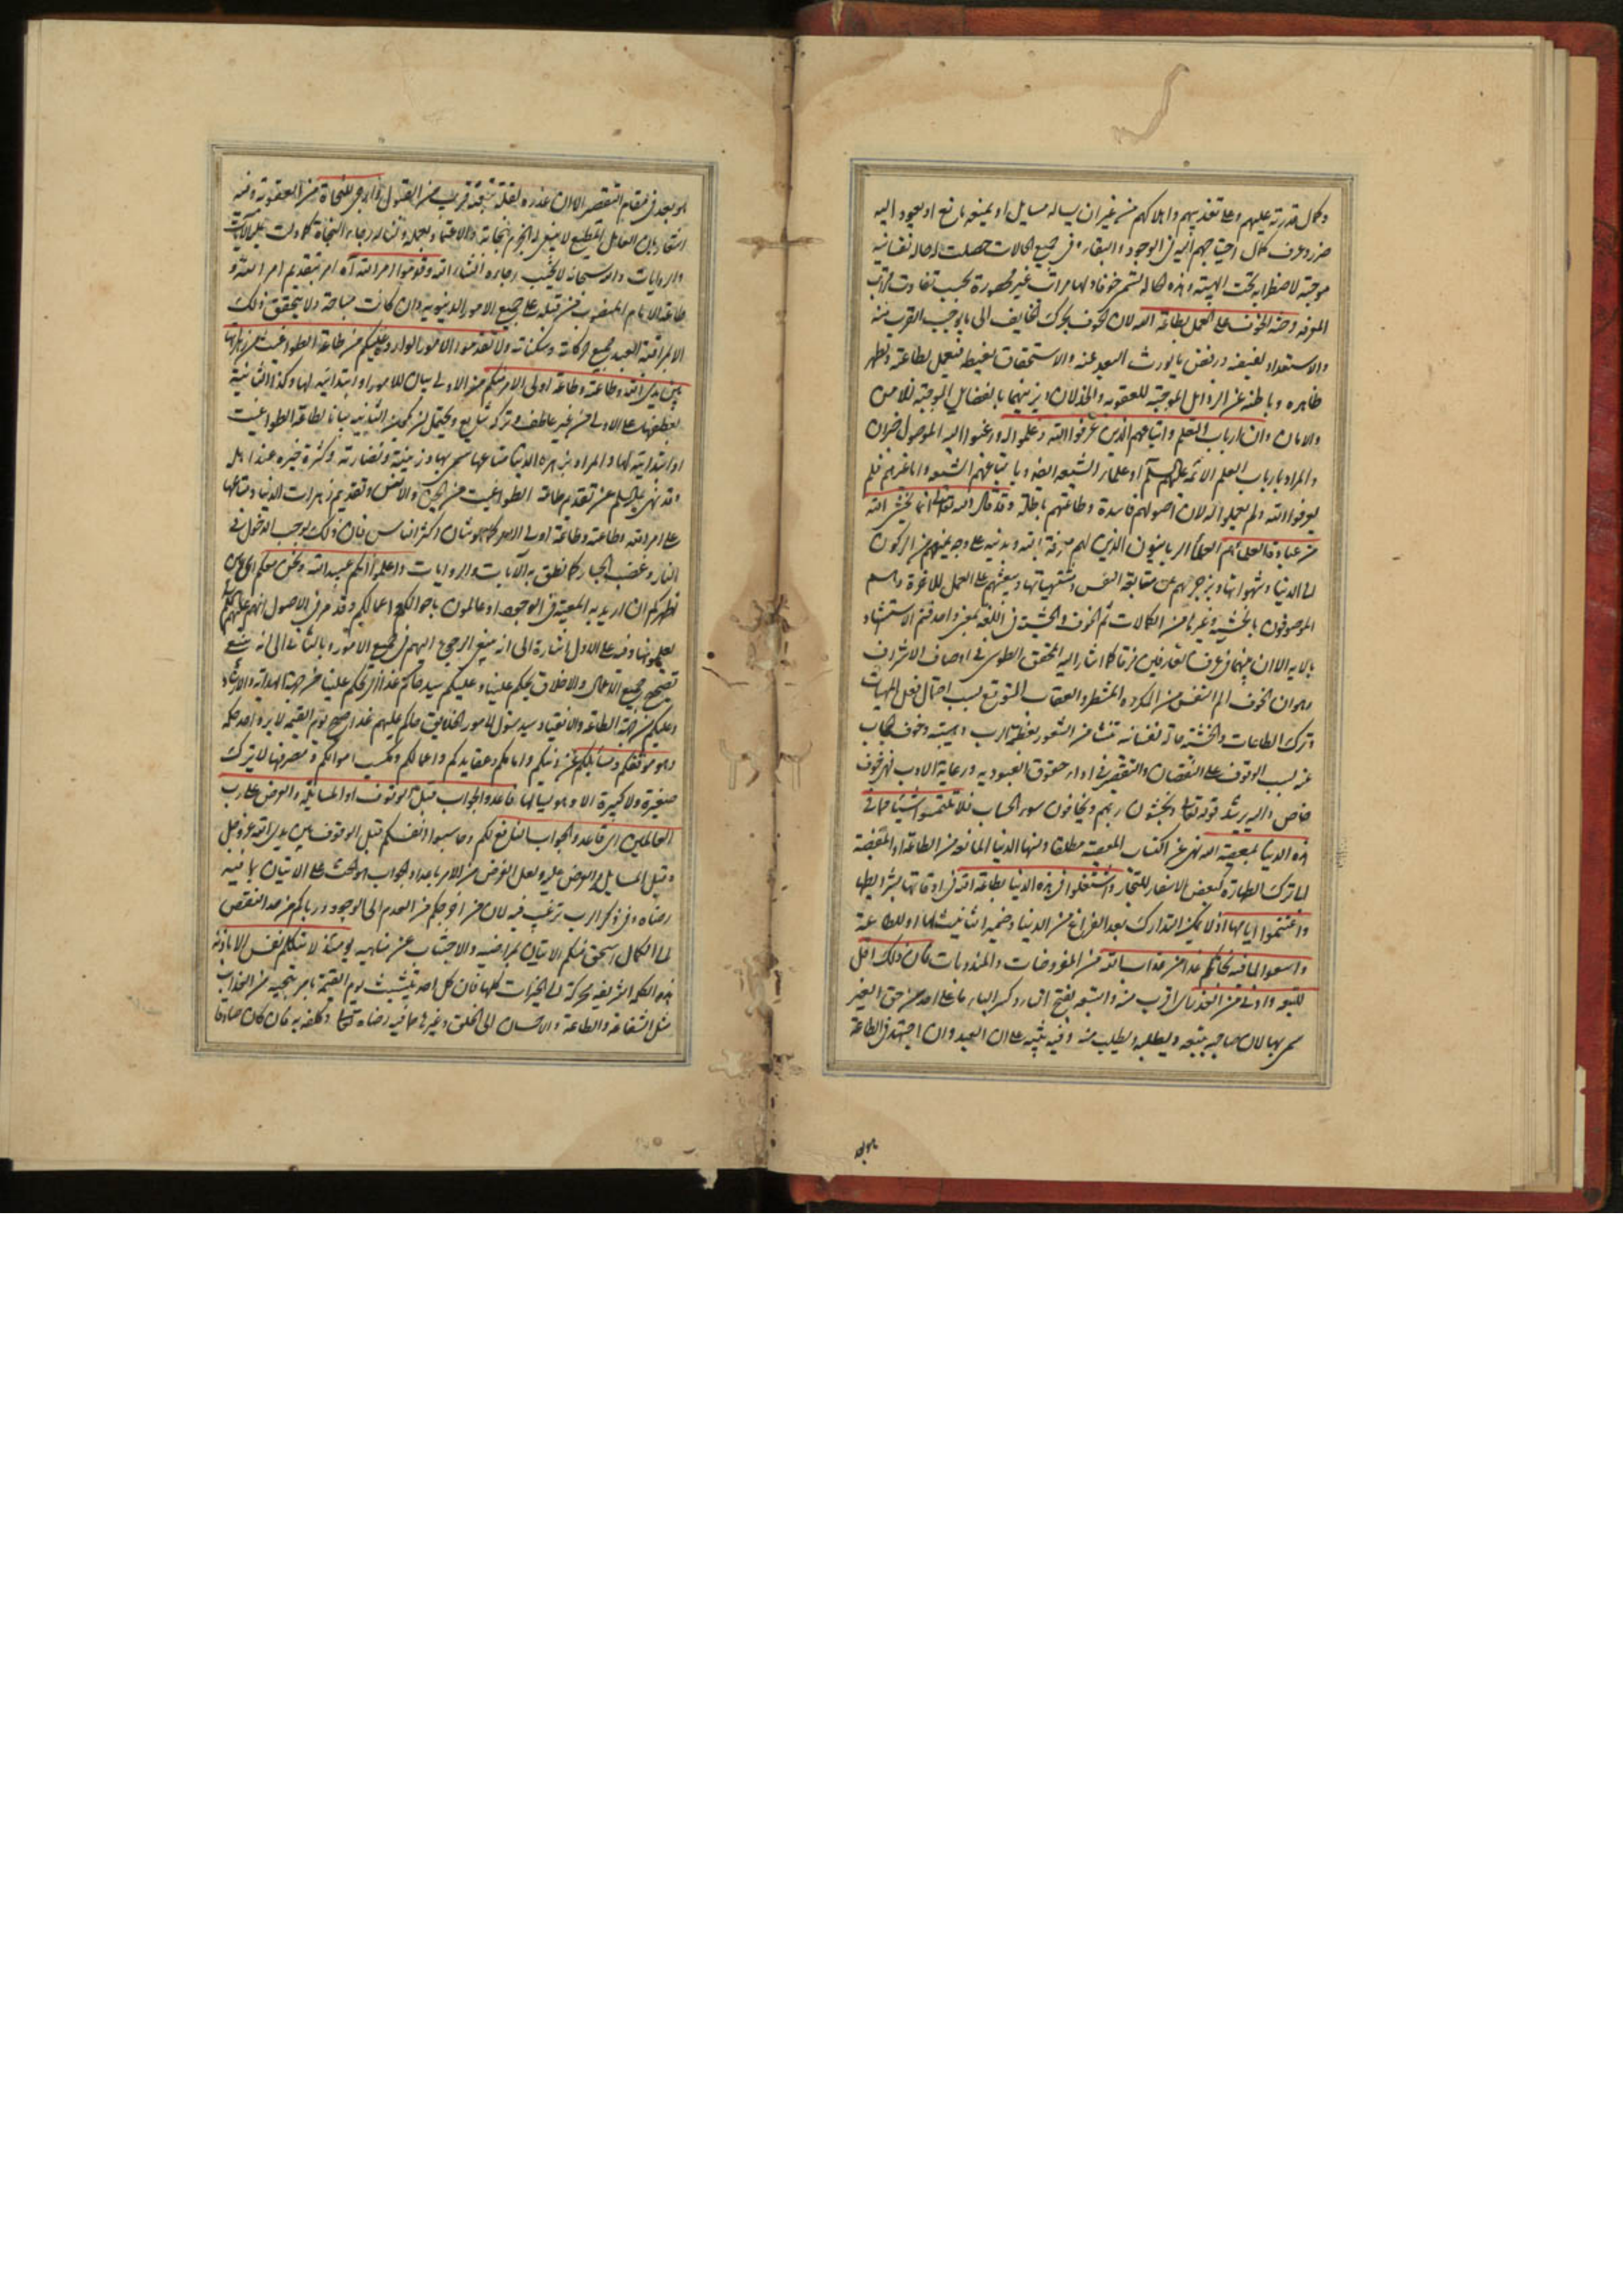 وكمال قدرته عليهم وعلى تعذيبهم واهلاكهم من غير ان يساله سايل او يمنعه مانع او يعود اليه
ضرر وعرف كمال احتياجهم اليه في الوجود والبقاء وفي جميع الحالات حصلت له حالة نفسانية
موجبة لاضطرابه تحت الهيبة وهذه الحالة تسمى خوفا ولها مراتب غير محصورة بحسب تفاوت مراتب
المعرفة وحثه الخوف على العمل بطاعة الله لان الخوف يحرك الخايف الى ما يوجب القرب منه
والاستعداد لفيضه ورفض ما يورث البعد عنه والاستحقاق لغيظه فيعمل بطاعته ويطهر
ظاهره وباطنه عن الرذائل الموجبة للعقوبة والخذلان ويزينهما بالفضايل الموجبة للامن
والامان وان ارباب العلم واتباعهم الذين عرفوا الله فعملوا له ورغبوا اليه الموصول خبر ان
والمراد بارباب العلم الائمة عليهم السلم او علماء الشيعة ايضا وباتباعهم الشيعة واما غيرهم فلم
يعرفوا الله ولم يعملوا له لان اصولهم فاسدة وطاعتهم باطلة وقد قال الله تعالى انما يخشى الله
من عباده العلماء هم العلماء الربانيون الذين لهم معرفة بالله وبدينه على وجه يمنعهم من الركون
الى الدنيا وشهواتها ويزجرهم عن متابعة النفس ومشتهياتها ويبعثهم على العمل للاخرة وهم
الموصوفون بالخشية وغيرها من الكمالات ثم الخوف والخشية في اللغة بمعنى واحد فتم الاستشهاد
بالاية الا ان بينهما في عرف العارفين فرقا كما اشار اليه المحقق الطوسي في اوصاف الاشراف
وهو ان الخوف الم النفس من المكروه المنتظر والعقاب المتوقع بسبب احتمال فعل المنهيات
وترك الطاعات والخشية حالة نفسانية تنشا من الشعور بعظمة الرب وهيبته وخوف الحجاب
عنه بسبب الوقوف على النقصان والتقصير في اداء حقوق العبودية ورعاية الادب فهي خوف
خاص واليه يرشد قوله تعالى ويخشون ربهم ويخافون سوء الحساب فلا تلتمسوا شيئا مما في
هذه الدنيا بمعصية الله نهى عن اكتساب المعصية مطلقا ومنها الدنيا المانعة من الطاعة او المفضية
الى ترك الطهارة كبعض الاسفار للتجار واشتغلوا في هذه الدنيا بطاعة الله في اوقاتها بشرايطها
واغتنموا ايامها اذ لا يمكن التدارك بعد الفراغ من الدنيا وضمير التانيث لها او للطاعة
واسعوا لما فيه نجاتكم غدا من عذاب الله من المفروضات والمندوبات فان ذلك اقل
للتبعة وادنى من العذر اي اقرب منه والتبعة بفتح التاء وكسر الباء ما على احد من حق الغير
سمي بها لان صاحبه يتبعه ويطلبه ويطلب منه وفيه تنبيه على ان العبد وان اجتهد في الطاعة
هو بعد
هو بعد في مقام التقصير الا ان عذره لقلة تبعته قريب من القبول وارجى للنجاة من العقوبة وفيه
اشعار بان العامل المطيع لا ينبغي له الجزم بنجاته والاعتماد بعمله وانما له رجاء النجاة كما دلت عليه الآيات
والروايات والله سبحانه لا يخيب رجاءه انشاء الله وقدموا امر الله اه امر بتقديم امر الله و
طاعة الامام المنصوب من قبله على جميع الامور الدنيوية وان كانت مباحة ولا يتحقق ذلك
الا بمراقبة العبد جميع حركاته وسكناته ولا تقدموا الامور الواردة عليكم من طاعة الطواغيت من زهراتها
بين يدي الله وطاعته وطاعة اولى الامر منكم من الاولى بيان للامور او ابتدائية لها وكذا الثانية
بعطفها على الاولى من غير عاطف وتركه شايع ويحتمل ان يكون الثانية بيانا لطاعة الطواغيت
او ابتدائية لها والمراد بزهرة الدنيا متاعها سمي بها وزينته ونضارته وكثرة خيره عند اهله
وقد نهى عليه السلم عن تقديم طاعة الطواغيت من الجن والانس وتقديم زهرات الدنيا ومتاعها
على امر الله وطاعته وطاعة اولى الامر كما هو شان اكثر الناس فان ذلك يوجب الدخول في
النار وغضب الجبار كما نطق به الآيات والروايات واعلموا انكم عبيد الله ونحن معكم اي نحن
نظيركم ان اريد به المعية في الوجود او عالمون باحوالكم واعمالكم وقد مر في الاصول انهم عليهم السلم
يعلمونها وفيه على الاول اشارة الى انه ينبغي الرجوع اليهم في جميع الامور وبالثاني الى انه ينبغي
تصحيح جميع الاعمال والاخلاق يحكم علينا وعليكم سيد حاكم غدا اي يحكم علينا من جهة الهداية والارشاد
وعليكم من جهة الطاعة والانقياد سيد مسؤول لامور الخلايق حاكم عليهم غدا وهو يوم القيمة لا يرد احد حكمه
وهو موقفكم ومسايلكم عن دينكم وامامكم وعقايدكم واعمالكم ومكسب اموالكم ومصرفها لا يترك
صغيرة ولا كبيرة الا وهو يسالها فاعدوا الجواب قبل الوقوف او المسايلة والعرض على رب
العالمين اي فاعدوا الجواب النافع لكم وحاسبوا انفسكم قبل الوقوف بين يدي الله عز وجل
وقبل المسايل والعرض عليه ولعل الغرض من الامر باعداد الجواب هو الحث على الاتيان بما فيه
رضاه وفي ذكر الرب ترغيب فيه لان من اخرجكم من العدم الى الوجود ورباكم من حد النقص
الى الكمال استحق منكم الاتيان بمراضيه والاجتناب عن مناهيه يومئذ لا تتكلم نفس الا باذنه
هذه الكلمة الشريفة محركة الى الخيرات كلها فان كل احد يتشبث يوم القيمة بما ينجيه من العذاب
مثل الشفاعة والطاعة والاحسان الى الخلق وغيرها مما فيه رضاه تعالى وكلفه به فان كان صادقا